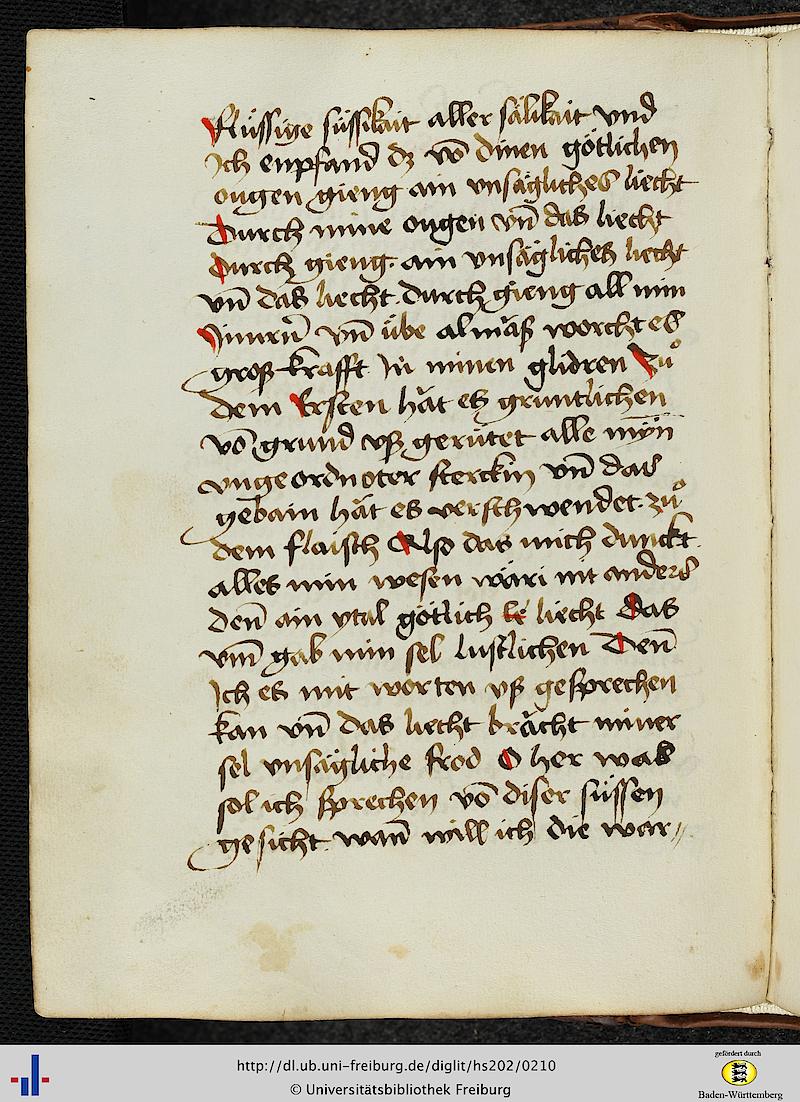 Flüssige süssikait aller sälikait vnd
Ich enpfand dz vō dinen götlichen
ougen gieng ain vnsägliches liecht
Durch mine ougen vn̄ das liecht
durch gieng. ain vnsägliches liecht
vn̄ das liecht. durch gieng all min
vn̄ übe almäß worcht es
groß krafft in minen glidren Zuͦ
dem Ersten hät es gruntlichen
vō grund vß gerütet alle myn
vngeordnoter sterckin vn̄ das
gebain hät es verschwendet. zuͦ
dem flaisch Also das mich dunckt.
alles min wesen wäri nit anders
den̄ ain ytal götlich le liecht Das
vm̄ gab min sel lustlichen Den̄
Ich es mit worten vß gesprechen
kan vn̄ das liecht brächt miner
sel vnsägliche frod O her was
sol ich sprechen vō diser süssen
gesicht. wan̄ will ich die war//
http://dl.ub.uni-freiburg.de/diglit/hs202/0210
© Universitätsbibliothek Freiburg
gefördert durch
Baden-Württemberg